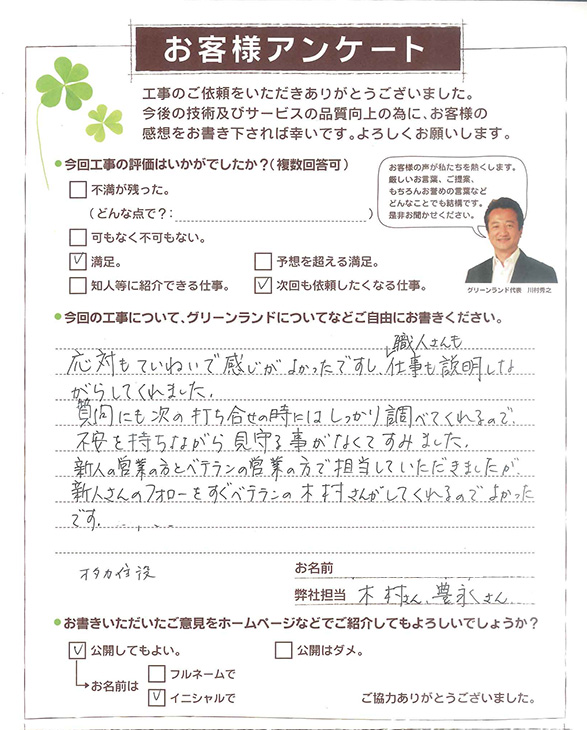 お客様アンケート
工事のご依頼をいただきありがとうございました。
今後の技術及びサービスの品質向上の為に、お客様の
感想をお書き下されば幸いです。よろしくお願いします。
●今回工事の評価はいかがでしたか？(複数回答可)
お客様の声が私たちを熱くします。
厳しいお言葉、ご提案、
もちろんお誉めの言葉など
どんなことでも結構です。
是非お聞かせください。
グリーンランド代表 川村秀之
不満が残った。
(どんな点で？: )
可もなく不可もない。
✓ 満足。
予想を超える満足。
知人等に紹介できる仕事。
✓ 次回も依頼したくなる仕事。
●今回の工事について、グリーンランドについてなどご自由にお書きください。
職人さんも
応対もていねいで感じがよかったですし、仕事も説明しな
がらしてくれました。
質問にも次の打ち合せの時にはしっかり調べてくれるので、
不安を持ちながら見守る事がなくてすみました。
新人の営業の方とベテランの営業の方で担当していただきましたが、
新人さんのフォローをすぐベテランの木村さんがしてくれるのでよかった
です。
お名前
弊社担当 木村さん、豊永さん
●お書きいただいたご意見をホームページなどでご紹介してもよろしいでしょうか？
✓ 公開してもよい。
公開はダメ。
お名前は
フルネームで
✓ イニシャルで
ご協力ありがとうございました。